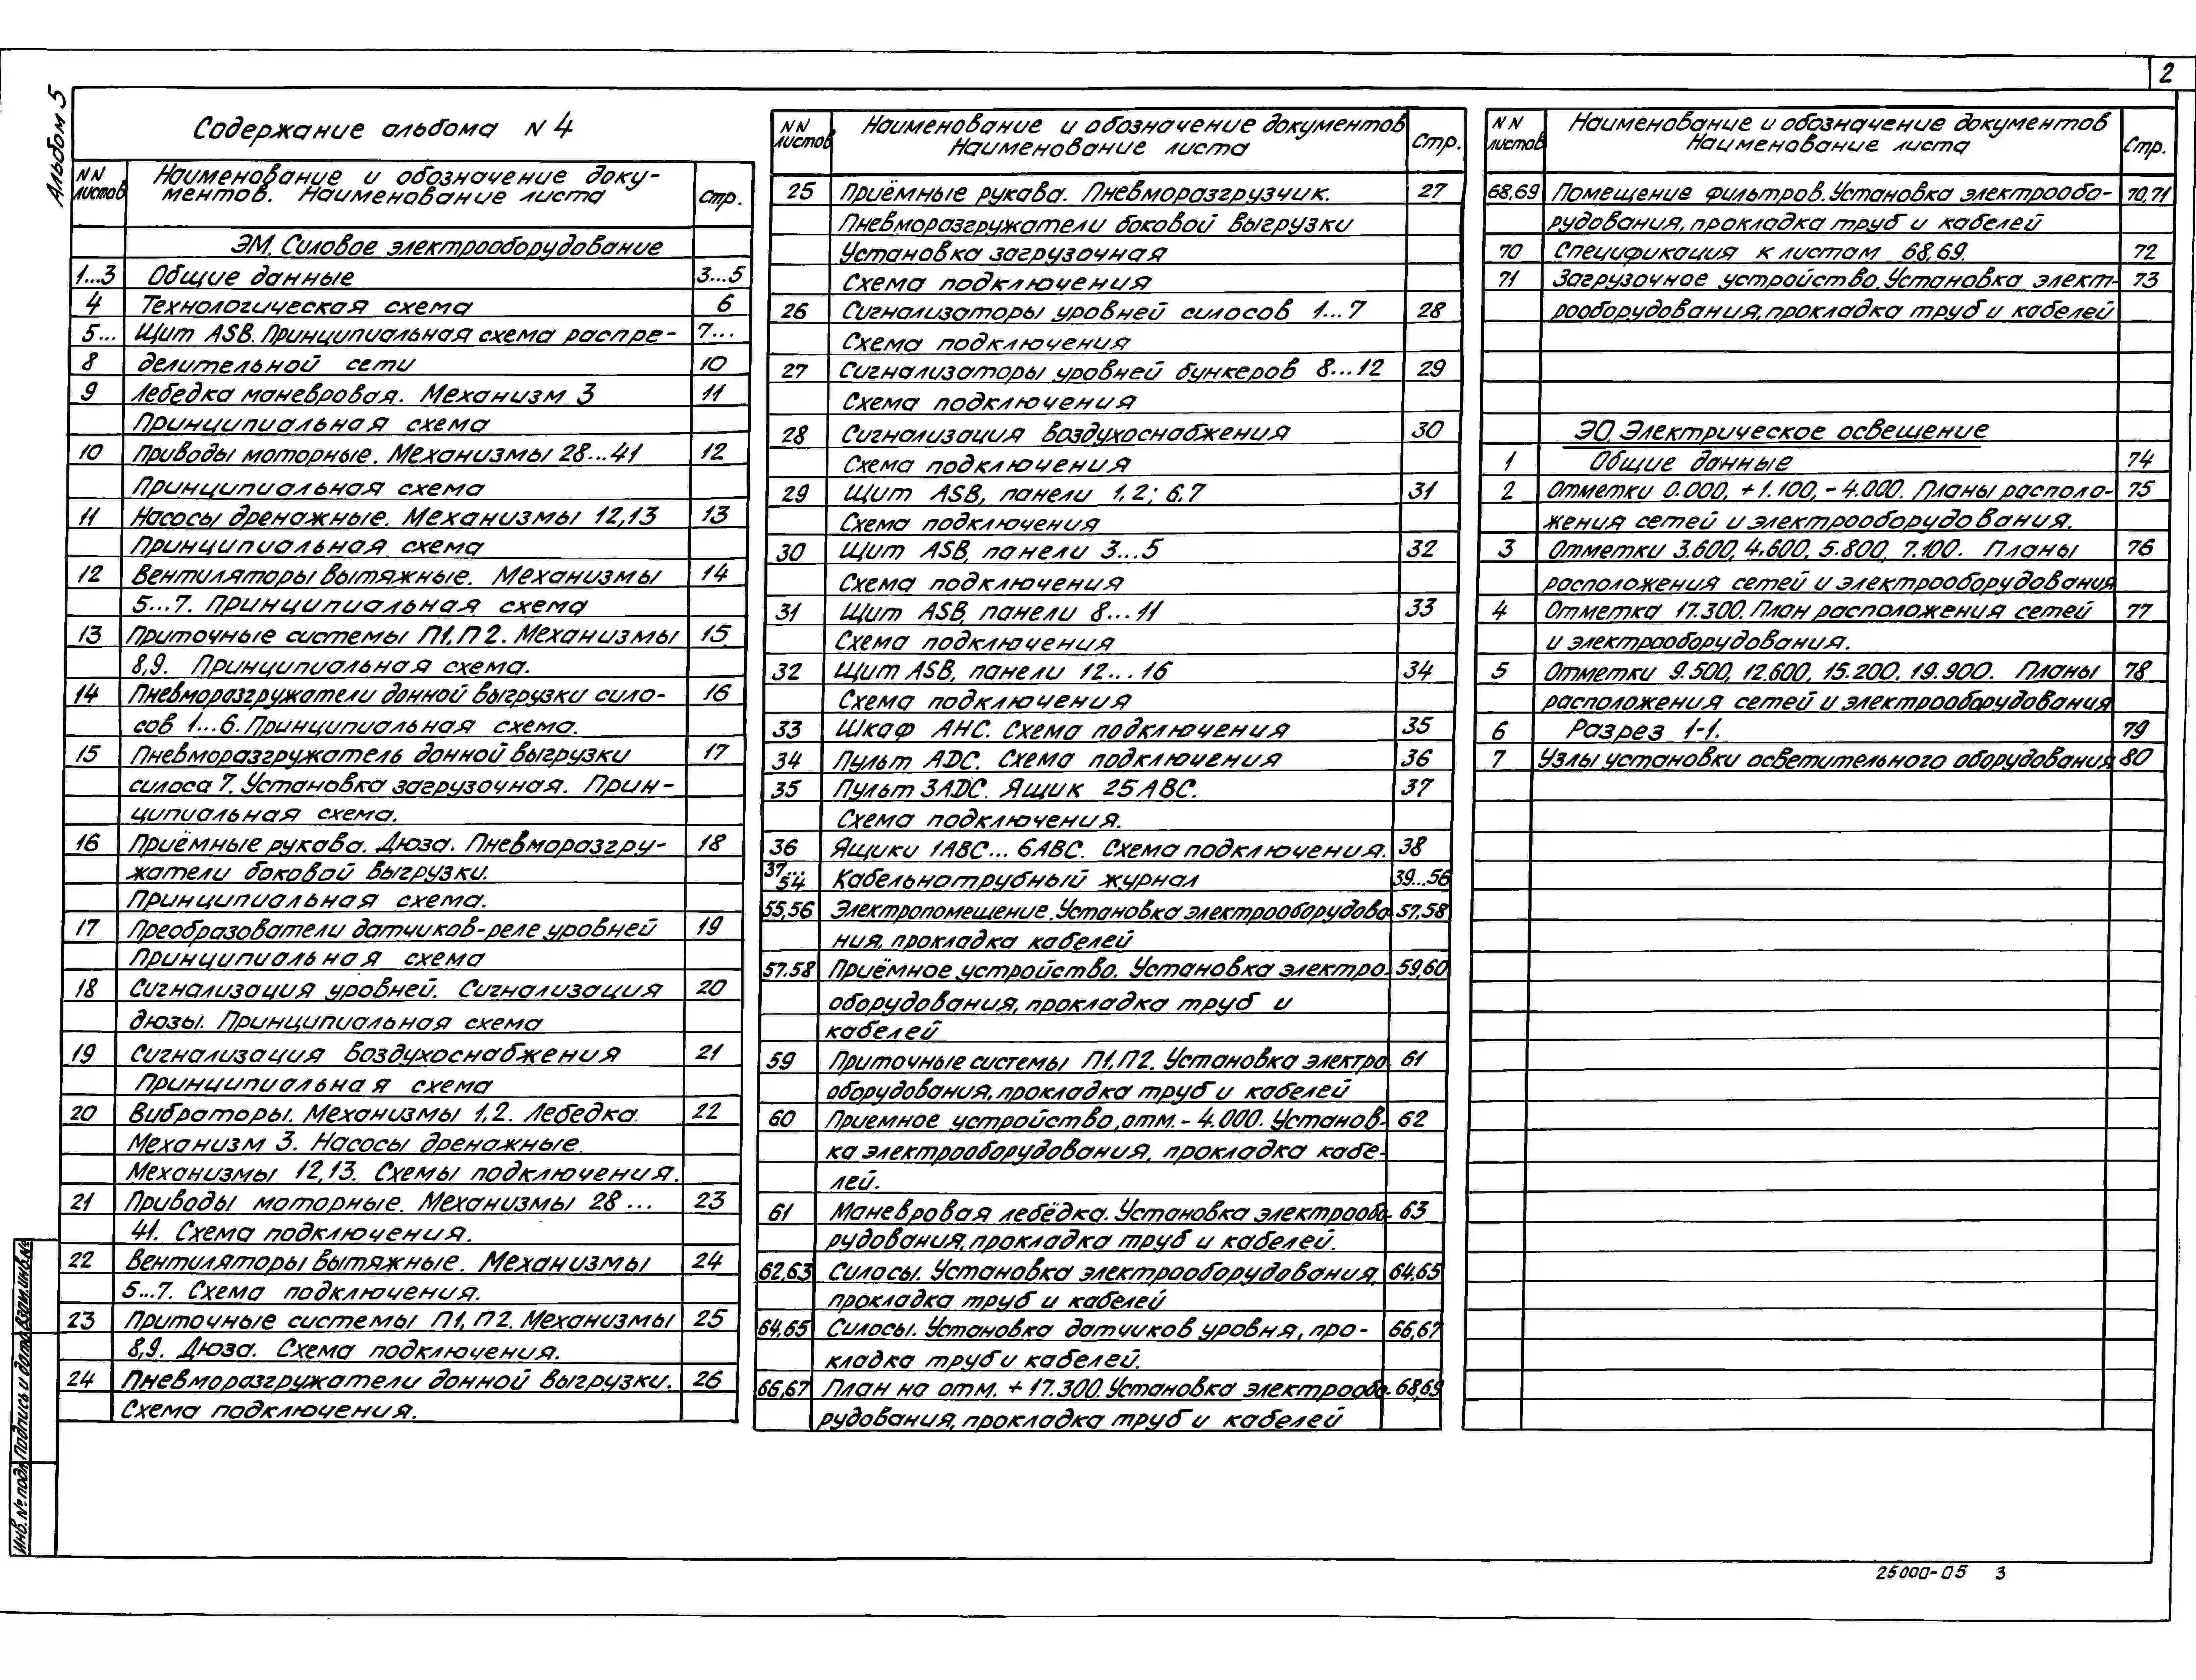 2
Альбом 5
Содержание альбома N 4
NN листов
Наименование и обозначение доку-
ментов. Наименование листа
Стр.
ЭМ. Силовое электрооборудование
1...3 Общие данные 3...5
4 Технологическая схема 6
5... Щит ASB. Принципиальная схема распре- 7...
8 делительной сети 10
9 Лебедка маневровая. Механизм 3 11
Принципиальная схема
10 Приводы моторные. Механизмы 28...41 12
Принципиальная схема
11 Насосы дренажные. Механизмы 12,13 13
Принципиальная схема
12 Вентиляторы вытяжные. Механизмы 14
5...7. Принципиальная схема
13 Приточные системы П1, П2. Механизмы 15
8,9. Принципиальная схема.
14 Пневморазгружатели донной выгрузки сило- 16
сов 1...6. Принципиальная схема.
15 Пневморазгружатель донной выгрузки 17
силоса 7. Установка загрузочная. Прин-
ципиальная схема.
16 Приёмные рукава. Дюза. Пневморазгру- 18
жатели боковой выгрузки.
Принципиальная схема.
17 Преобразователи датчиков-реле уровней 19
Принципиальная схема
18 Сигнализация уровней. Сигнализация 20
дюзы. Принципиальная схема
19 Сигнализация воздухоснабжения 21
Принципиальная схема
20 Вибраторы. Механизмы 1,2. Лебедка. 22
Механизм 3. Насосы дренажные.
Механизмы 12,13. Схемы подключения.
21 Приводы моторные. Механизмы 28... 23
41. Схема подключения.
22 Вентиляторы вытяжные. Механизмы 24
5...7. Схема подключения.
23 Приточные системы П1, П2. Механизмы 25
8,9. Дюза. Схема подключения.
24 Пневморазгружатели донной выгрузки. 26
Схема подключения.
NN листов
Наименование и обозначение документов
Наименование листа
Стр.
25 Приёмные рукава. Пневморазгрузчик. 27
Пневморазгружатели боковой выгрузки
Установка загрузочная
Схема подключения
26 Сигнализаторы уровней силосов 1...7 28
Схема подключения
27 Сигнализаторы уровней бункеров 8...12 29
Схема подключения
28 Сигнализация воздухоснабжения 30
Схема подключения
29 Щит ASB, панели 1,2; 6,7 31
Схема подключения
30 Щит ASB, панели 3...5 32
Схема подключения
31 Щит ASB, панели 8...11 33
Схема подключения
32 Щит ASB, панели 12...16 34
Схема подключения
33 Шкаф АНС. Схема подключения 35
34 Пульт ADC. Схема подключения 36
35 Пульт 3ADC. Ящик 25АВС. 37
Схема подключения.
36 Ящики 1АВС... 6АВС. Схема подключения. 38
37...54 Кабельнотрубный журнал 39...56
55,56 Электропомещение. Установка электрооборудова- 57,58
ния, прокладка кабелей
57,58 Приёмное устройство. Установка электро- 59,60
оборудования, прокладка труб и
кабелей
59 Приточные системы П1, П2. Установка электро- 61
оборудования, прокладка труб и кабелей
60 Приемное устройство, отм. - 4.000. Установ- 62
ка электрооборудования, прокладка кабе-
лей.
61 Маневровая лебёдка. Установка электрообо- 63
рудования, прокладка труб и кабелей.
62,63 Силосы. Установка электрооборудования, 64,65
прокладка труб и кабелей
64,65 Силосы. Установка датчиков уровня, про- 66,67
кладка труб и кабелей.
66,67 План на отм. + 17.300. Установка электрообо- 68,69
рудования, прокладка труб и кабелей
NN листов
Наименование и обозначение документов
Наименование листа
Стр.
68,69 Помещение фильтров. Установка электрообо- 70,71
рудования, прокладка труб и кабелей
70 Спецификация к листам 68,69. 72
71 Загрузочное устройство. Установка элект- 73
рооборудования, прокладка труб и кабелей
ЭО. Электрическое освещение
1 Общие данные 74
2 Отметки 0.000, +1.100, -4.000. Планы располо- 75
жения сетей и электрооборудования.
3 Отметки 3.600, 4.600, 5.800, 7.100. Планы 76
расположения сетей и электрооборудования
4 Отметка 17.300. План расположения сетей 77
и электрооборудования.
5 Отметки 9.500, 12.600, 15.200, 19.900. Планы 78
расположения сетей и электрооборудования
6 Разрез 1-1. 79
7 Узлы установки осветительного оборудования 80
Инв. № подл. Подпись и дата Взам. инв. №
25000-05 3